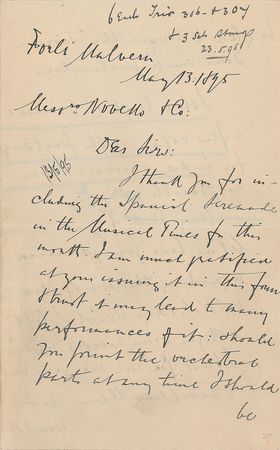 6 each Trio 306 & 307
& 3 Sets Strings
23.5.95
Forli Malvern
May 13.1895
Messrs Novello & Co:
Dear Sirs:
13/5/95
I thank you for in-
cluding the Spanish Serenade
in the Musical Times for this
month. I am much gratified
at your issuing it in this form
& trust it may lead to many
performances of it: should
you print the orchestral
parts at any time I should
be